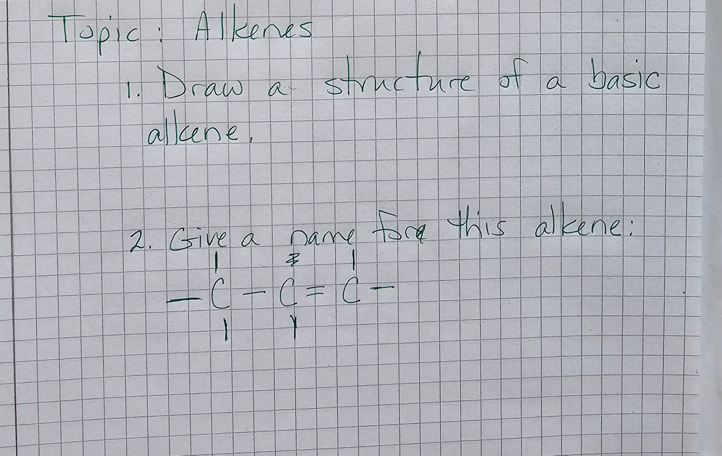 Topic: Alkenes
1. Draw a structure of a basic
alkene.
2. Give a name for this alkene:
— C — C = C —